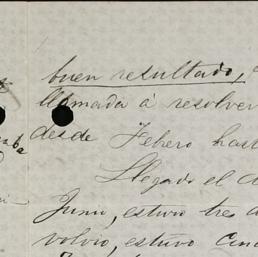 buen resultado,
llamada á resolver
desde Febrero hast
Llegado el d
Junio, estuvo tres d
volvio, estuvo